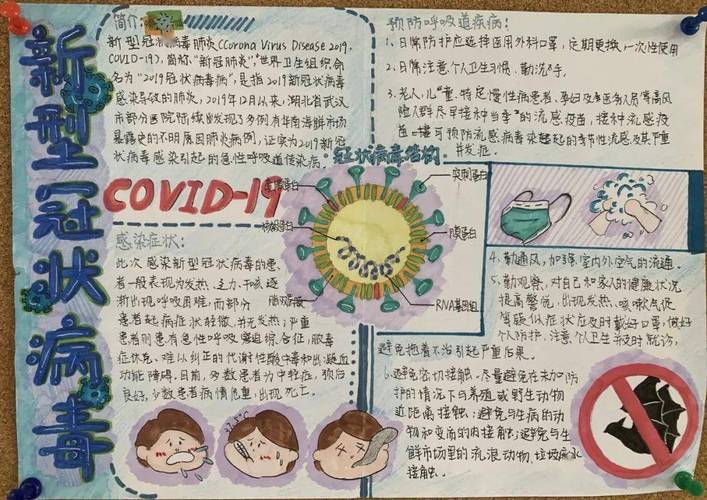 新型冠状病毒
简介:
新型冠状病毒肺炎(Corona Virus Disease 2019,
COVID-19),简称"新冠肺炎",世界卫生组织命
名为"2019冠状病毒病",是指2019新冠状病毒
感染导致的肺炎,2019年12月以来,湖北省武汉
市部分医院陆续发现了多例有华南海鲜市场
暴露史的不明原因肺炎病例,证实为2019新冠
状病毒感染引起的急性呼吸道传染病。
COVID-19
感染症状:
此次感染新型冠状病毒的患
者一般表现为发热、乏力、干咳逐
渐出现呼吸困难,而部分
患者起病症状轻微,并无发热;严重
患者则患有急性呼吸窘迫综合征,脓毒
症休克、难以纠正的代谢性酸中毒和出凝血
功能障碍。目前,多数患者为中轻症,预后
良好,少数患者病情危重,出现死亡。
冠状病毒结构
刺突蛋白
膜蛋白
RNA基因组
预防呼吸道疾病:
1、日常防护应选择医用外科口罩,定期更换,一次性使用
2、日常注意个人卫生习惯,勤洗手。
3、老人、儿童、特定慢性病患者、孕妇及医务人员等高风
险人群尽早接种当季的流感疫苗,接种流感疫
苗可预防流感病毒引起的季节性流感及其严重
并发症。
4、勤通风,加强室内外空气的流通。
5、勤观察,对自己和家人的健康状况
提高警觉,出现发热、咳嗽气促
等疑似症状应及时戴好口罩,做好
个人防护,注意个人卫生并及时就诊,
避免拖着不治引起严重后果。
6、避免密切接触。尽量避免在未加防
护的情况下与养殖或野生动物
近距离接触;避免与生病的动
物和变质的肉接触;避免与生
鲜市场里的流浪动物、垃圾废水
接触。